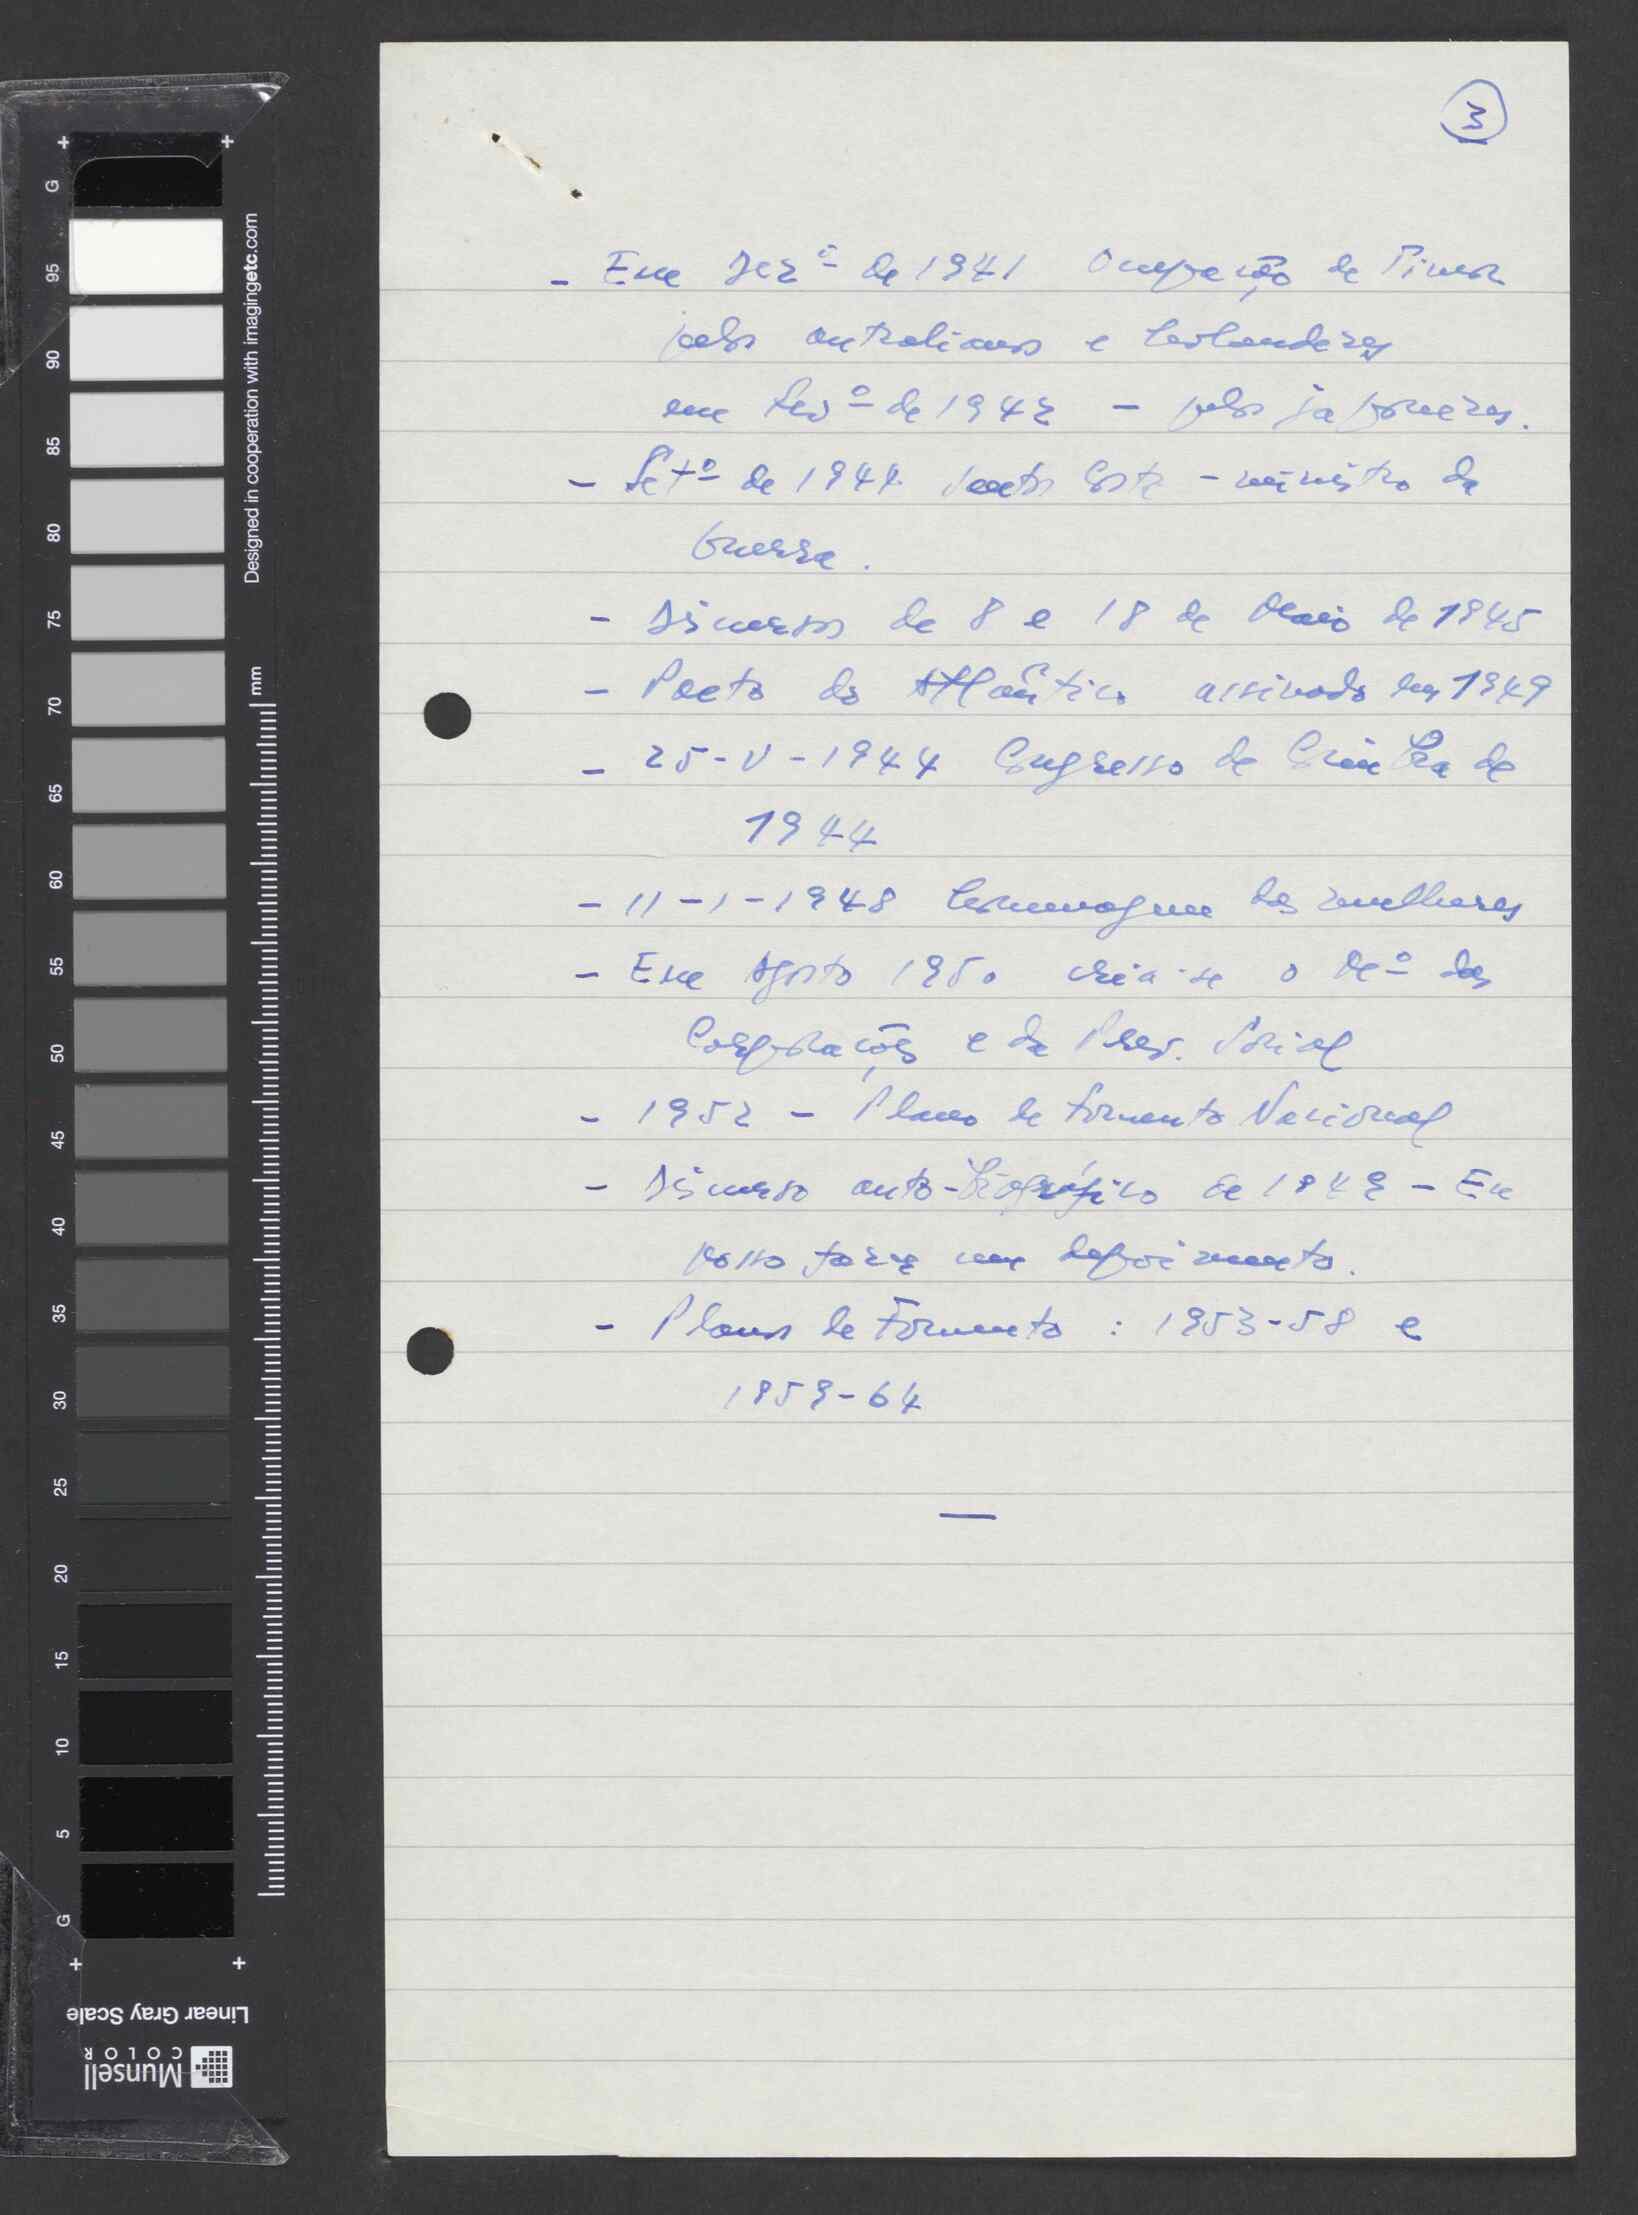 3
- Em Dezº de 1941 Ocupação de Timor
pelos australianos e holandeses
em Fevº de 1942 - pelos japoneses.
- Setº de 1944 Santos Costa - ministro da
Guerra.
- Discursos de 8 e 18 de Maio de 1945
- Pacto do Atlântico assinado em 1949
- 25-V-1944 Congresso da União Na de
1944
- 11-1-1948 homenagem das mulheres
- Em Agosto 1950 cria-se o Mº das
Corporações e da Prev. Social
- 1952 - Plano de Fomento Nacional
- Discurso auto-biográfico de 1949 - Eu
posso fazer um depoimento.
- Planos de Fomento : 1953-58 e
1959-64
G
95
90
85
80
75
70
65
60
55
50
45
40
35
30
25
20
15
10
5
G
Designed in cooperation with imagingetc.com
mm
Linear Gray Scale
Munsell
COLOR